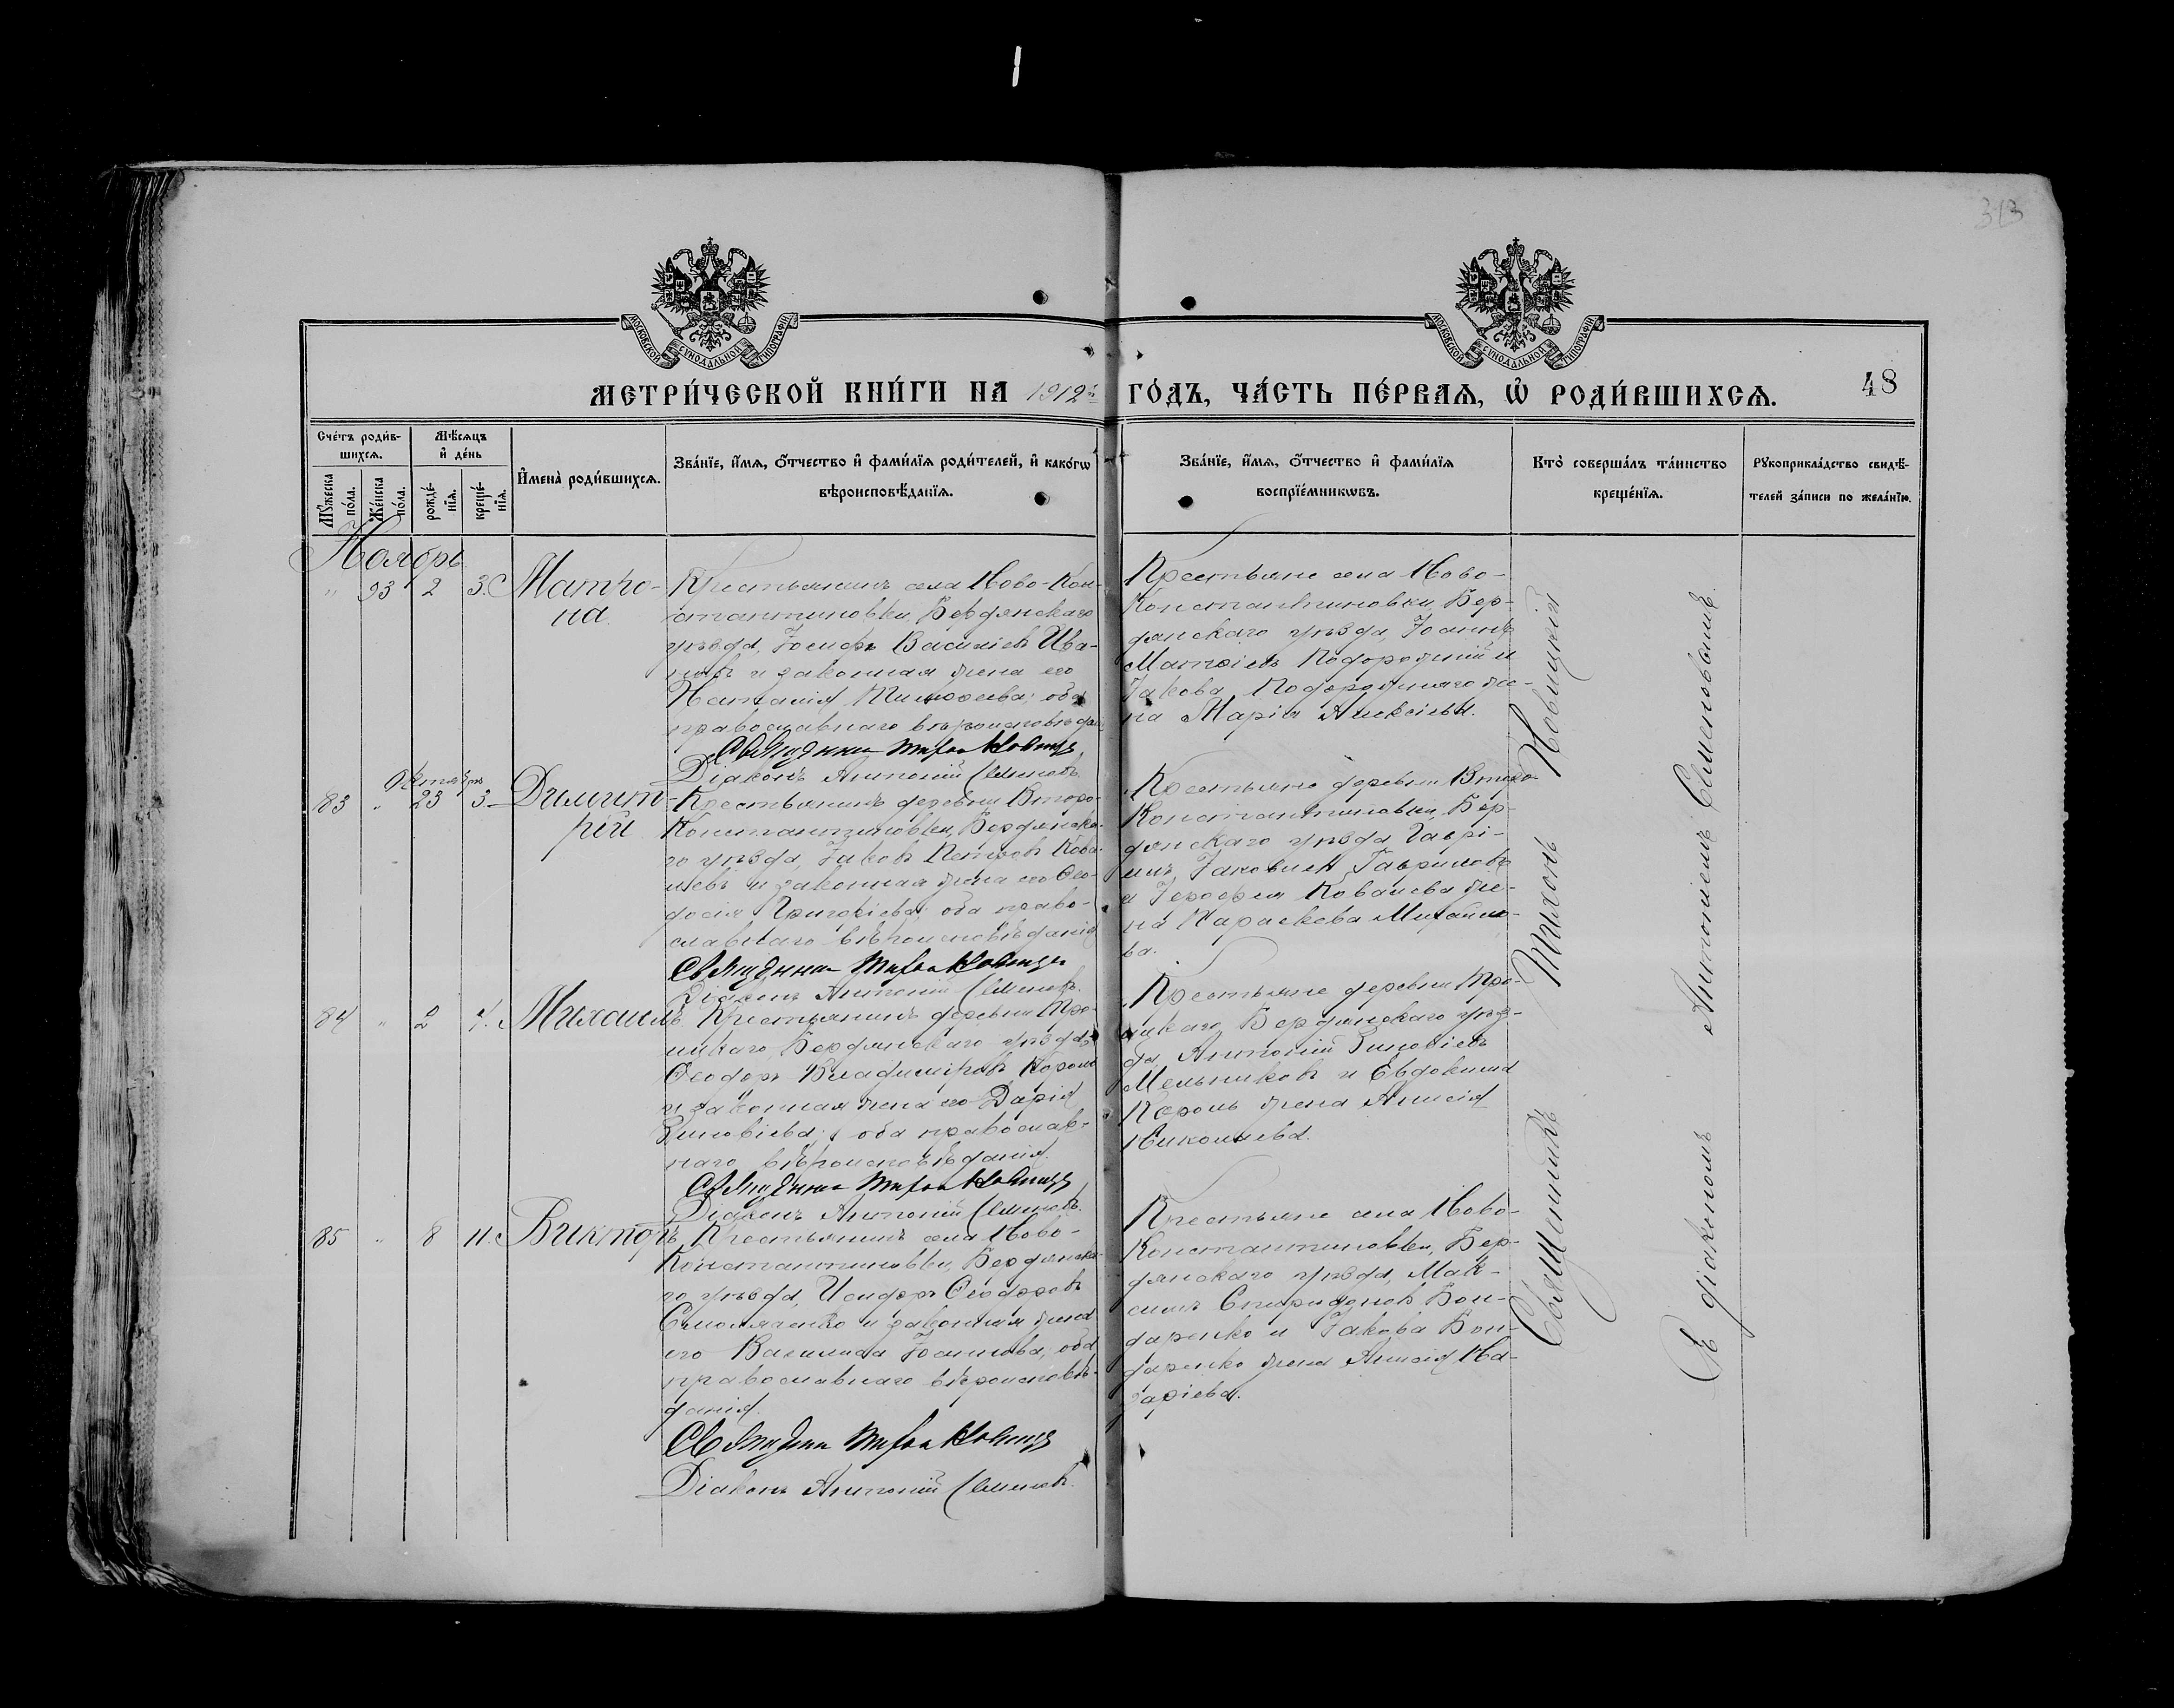 313
МОСКОВСКОЙ СѴНОДАЛЬНОЙ ТИПОГРАФІИ
МОСКОВСКОЙ СѴНОДАЛЬНОЙ ТИПОГРАФІИ
МЕТРИ́ЧЕСКОЙ КНИ́ГИ НА 1912й ГО́ДЪ, ЧА́СТЬ ПЕ́РВАЯ, Ѡ҆ РОДИ́ВШИХСЯ.
48
Сче́тъ роди́в-
шихся.
Мѣ́сяцъ
и҆ де́нь
Мꙋ́жеска
по́ла.
Же́нска
по́ла.
рожде́-
нїя.
креще́-
нїя.
И҆мена̀ роди́вшихся.
Зва́нїе, и҆́мя, ѻ҆́тчество и҆ фами́лїя роди́телей, и҆ како́гѡ
вѣроисповѣ́данїя.
Зва́нїе, и҆́мя, ѻ҆́тчество и҆ фами́лїя
воспрїе́мникѡвъ.
Кто̀ соверша́лъ та́инство
креще́нїя.
Рꙋкоприкла́дство свидѣ́-
телей за́писи по жела́нїю.
Ноябрь
" 93 2 3. Матро-
на.
Крестьянинъ села Ново-Кон-
стантиновки, Бердянскаго
уѣзда, Іосифъ Василіевъ Ива-
и законная жена его
Наталія Тимоѳеева; оба
православнаго вѣроисповѣдан
Священникъ Тихонъ Новицкій
Діаконъ Антоній Семеновъ.
Крестьяне села Ново-
Константиновки, Бер-
дянскаго уѣзда, Іоаннъ
Матѳіевъ Подгородній и
Іакова Подгородняго же-
на Марія Алексіева.
Октябрь
83 " 23 3. Димит-
рій
Крестьянинъ деревни Второ-
Константиновки, Бердянска-
го уѣзда, Іаковъ Петровъ Кова-
левъ и законная жена его Ѳео-
досія Григоріева; оба право-
славнаго вѣроисповѣданія
Священникъ Тихонъ Новицкій
Діаконъ Антоній Семеновъ.
Крестьяне деревни Второ-
Константиновки, Бер-
дянскаго уѣзда Гаврі-
илъ Іаковлевъ Гавриловъ
и Іерофея Ковалева же-
на Параскева Михайло-
ва.
84 " 2 4. Михаилъ
Крестьянинъ деревни Тро-
ицкаго, Бердянскаго уѣзда,
Ѳеодоръ Владиміровъ Король
и законная жена его Дарія
Зиновіева; оба православ-
наго вѣроисповѣданія.
Священникъ Тихонъ Новицкій
Діаконъ Антоній Семеновъ.
Крестьяне деревни Тро-
ицкаго, Бердянскаго уѣз-
да, Антоній Зиновіевъ
Мельниковъ и Евдокима
Король жена Анисія
Николаева.
85 " 8 11. Викторъ
Крестьянинъ села Ново-
Константиновки, Бердянска-
го уѣзда, Исидоръ Ѳеодоровъ
и законная жена
его Василиса Іоаннова, оба
православнаго вѣроисповѣ-
данія.
Священникъ Тихонъ Новицкій
Діаконъ Антоній Семеновъ.
Крестьяне села Ново-
Константиновки, Бер-
дянскаго уѣзда, Мак-
симъ Спиридоновъ Бон-
даренко и Іакова Бон-
даренко жена Анисія На-
заріева.
Священникъ Тихонъ Новицкій
Съ діакономъ Антоніемъ Семеновымъ.